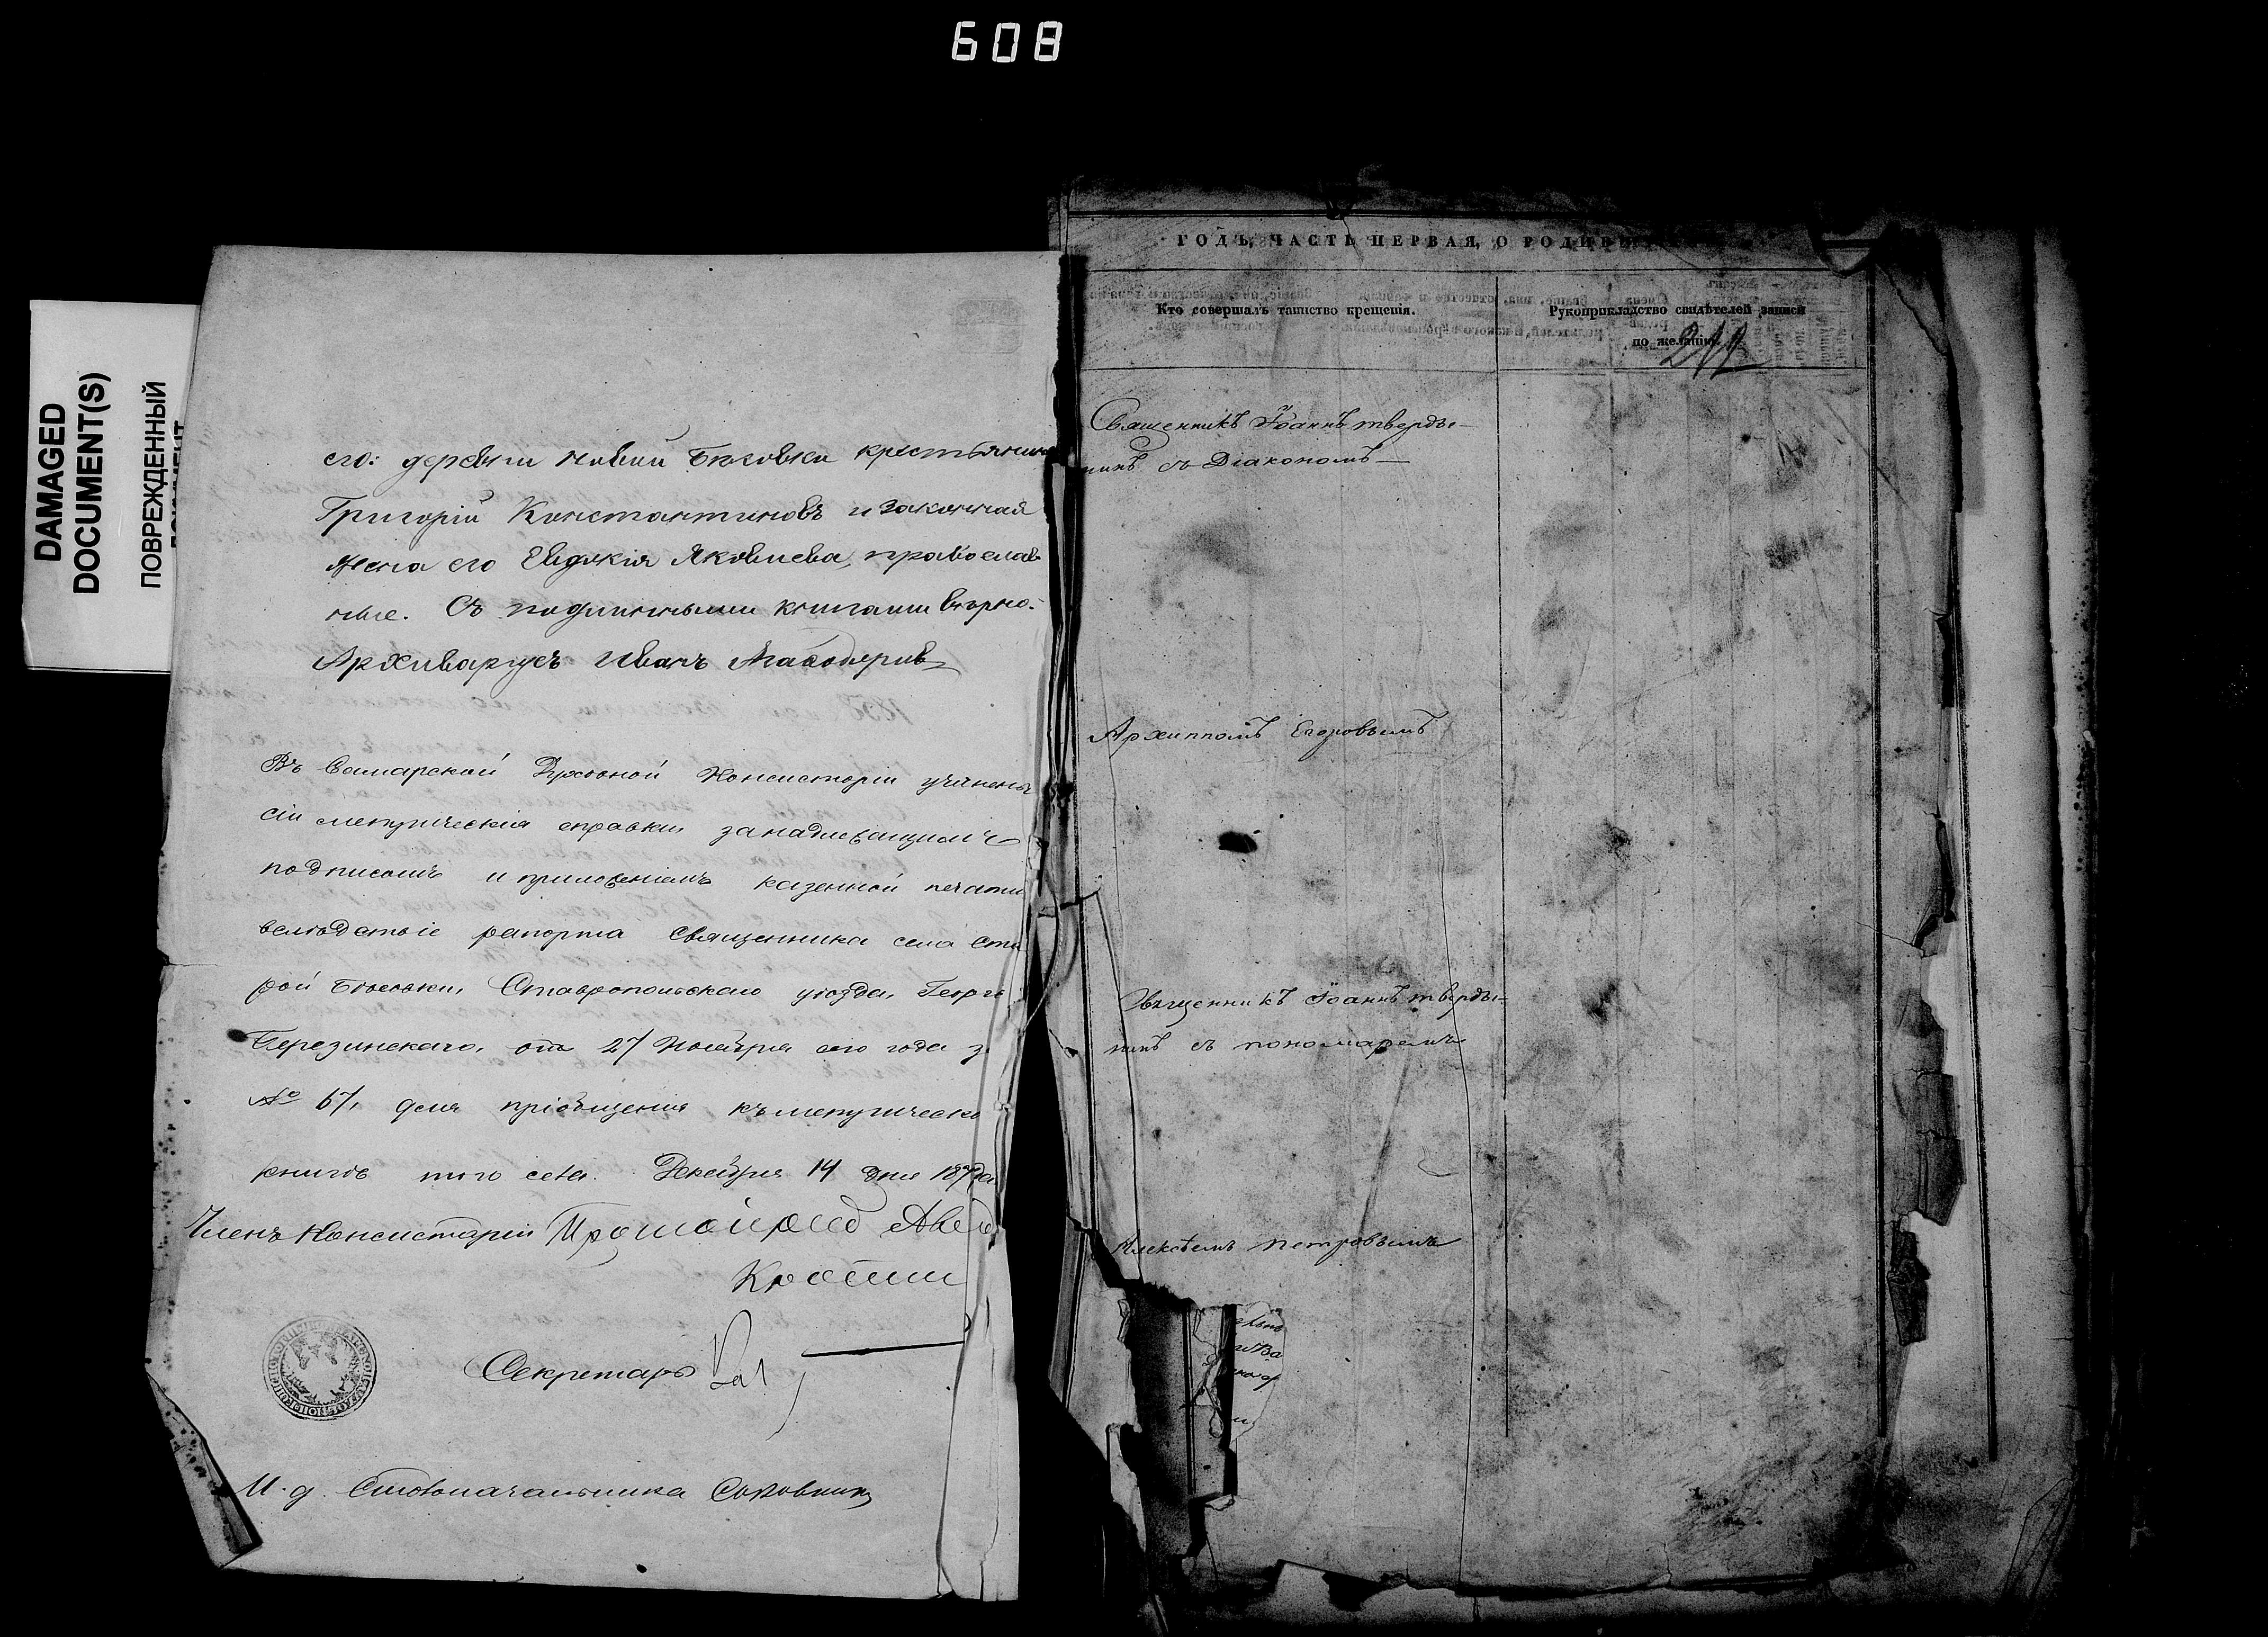 608
DAMAGED
DOCUMENT(S)
ПОВРЕЖДЕННЫЙ
его: деревни Новой Бесовки крестьянин
Григорій Константиновъ и законная
жена его Евдокія Яковлева, православ-
ные. Съ подлинными книгами вѣрно:
Архиваріусъ Иванъ
Въ Самарской Духовной Консисторіи учинены
сіи метрическія справки, за надлежащимъ
подписомъ и приложеніемъ казенной печати
вслѣдствіе рапорта Священника села Ста
рой Бѣсовки, Ставропольскаго уѣзда, Георгія
Березинскаго, отъ 27 Ноября сего года за
№ 67, для пріобщенія къ метрической
книгѣ того села. Декабря 14 дня
Членъ Консисторіи Протоіерей
Секретарь
И. д. Столоначальника
ГОДЪ, ЧАСТЬ ПЕРВАЯ, О РОДИВ
Кто совершалъ таинство крещенія.
Рукоприкладство свидѣтелей записи
по желанію.
Священникъ Іоаннъ тверды-
нинъ съ Діакономъ
Архиппомъ Егоровымъ
Священникъ Іоаннъ тверды-
нинъ съ пономаремъ
Алексѣемъ Петровымъ